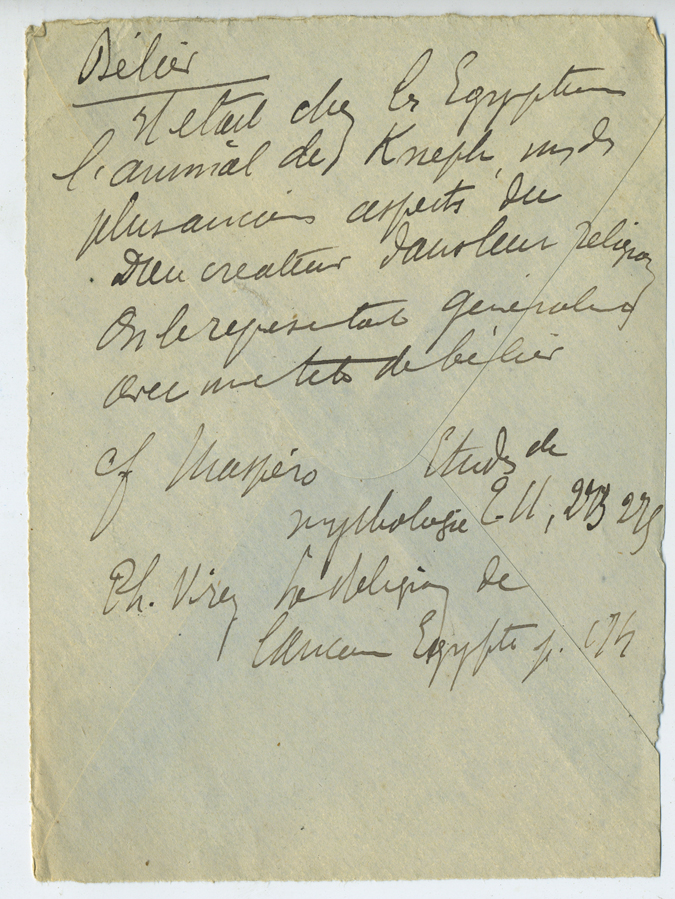 Bélier
Il était chez les Egyptiens
l'animal de Kneph, un des
plus anciens aspects du
Dieu createur dans leur religion
On le representait généralement
avec une tete de bélier
cf Maspéro Etudes de
mythologie T. II, 273 275
Ph. Virey La Religion de
l'Ancienne Egypte p.